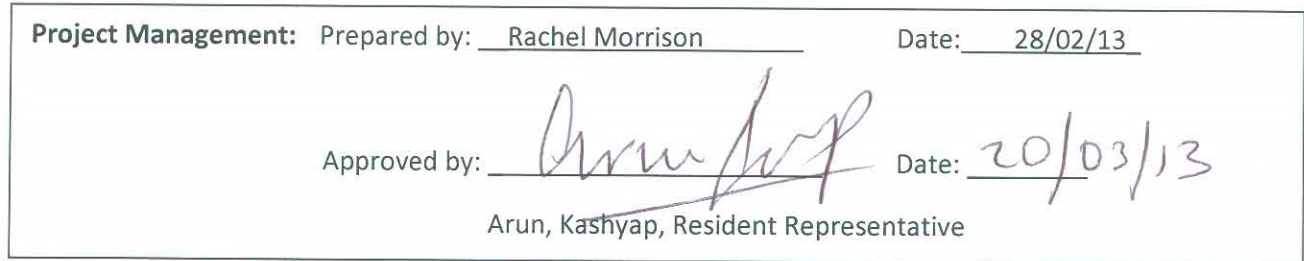 Project Management: Prepared by: Rachel Morrison Date: 28/02/13
Approved by: Date: 20/03/13
Arun, Kashyap, Resident Representative